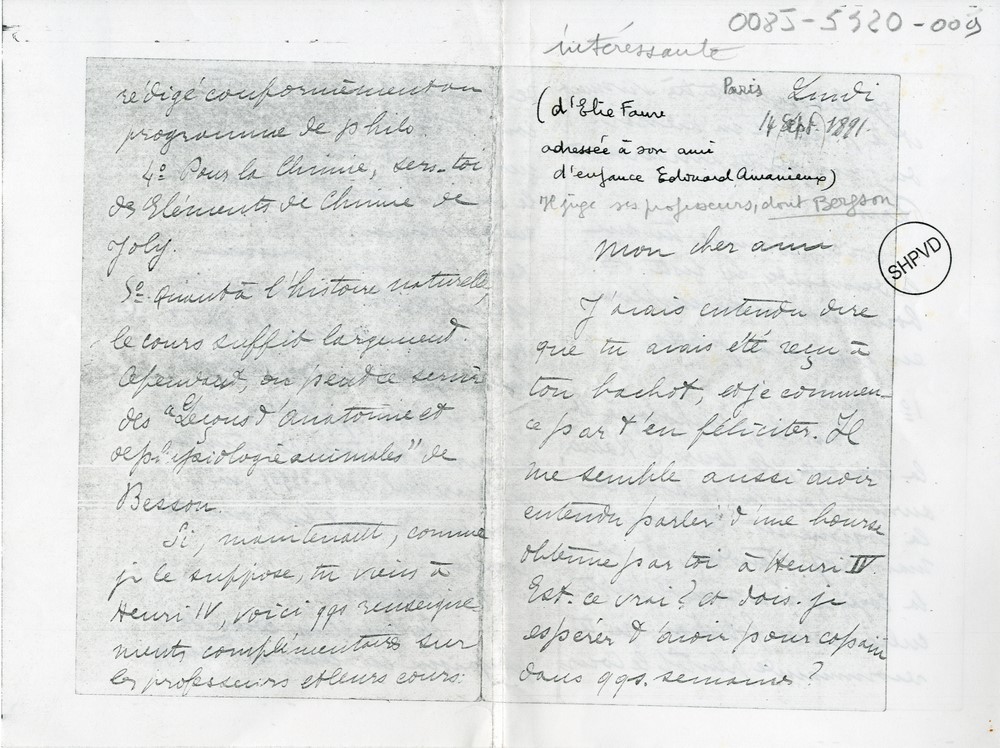 0085-5920-009
intéressante
rédigé conformément au
programme de philo
4º Pour la Chimie, sers-toi
des Eléments de Chimie de
Joly.
5º. Quant à l'histoire naturelle,
le cours suffit largement.
Cependant, on peut se servir
des "Leçons d'anatomie et
de physiologie animales" de
Besson.
Si, maintenant, comme
je le suppose, tu viens à
Henri IV, voici qqs renseigne
ments complémentaires sur
les professeurs et leurs cours:
Paris Lundi
14 Sept. 1891.
(d'Elie Faure
adressée à son ami
d'enfance Edouard Amanieux)
Il juge ses professeurs, dont Bergson
SHPVD
Mon cher ami
J'avais entendu dire
que tu avais été reçu à
ton bachot, et je commen-
ce par t'en féliciter. Il
me semble aussi avoir
entendu parler d'une bourse
obtenue par toi à Henri IV.
Est-ce vrai? et dois-je
espérer t'avoir pour copain
dans qqs. semaines?